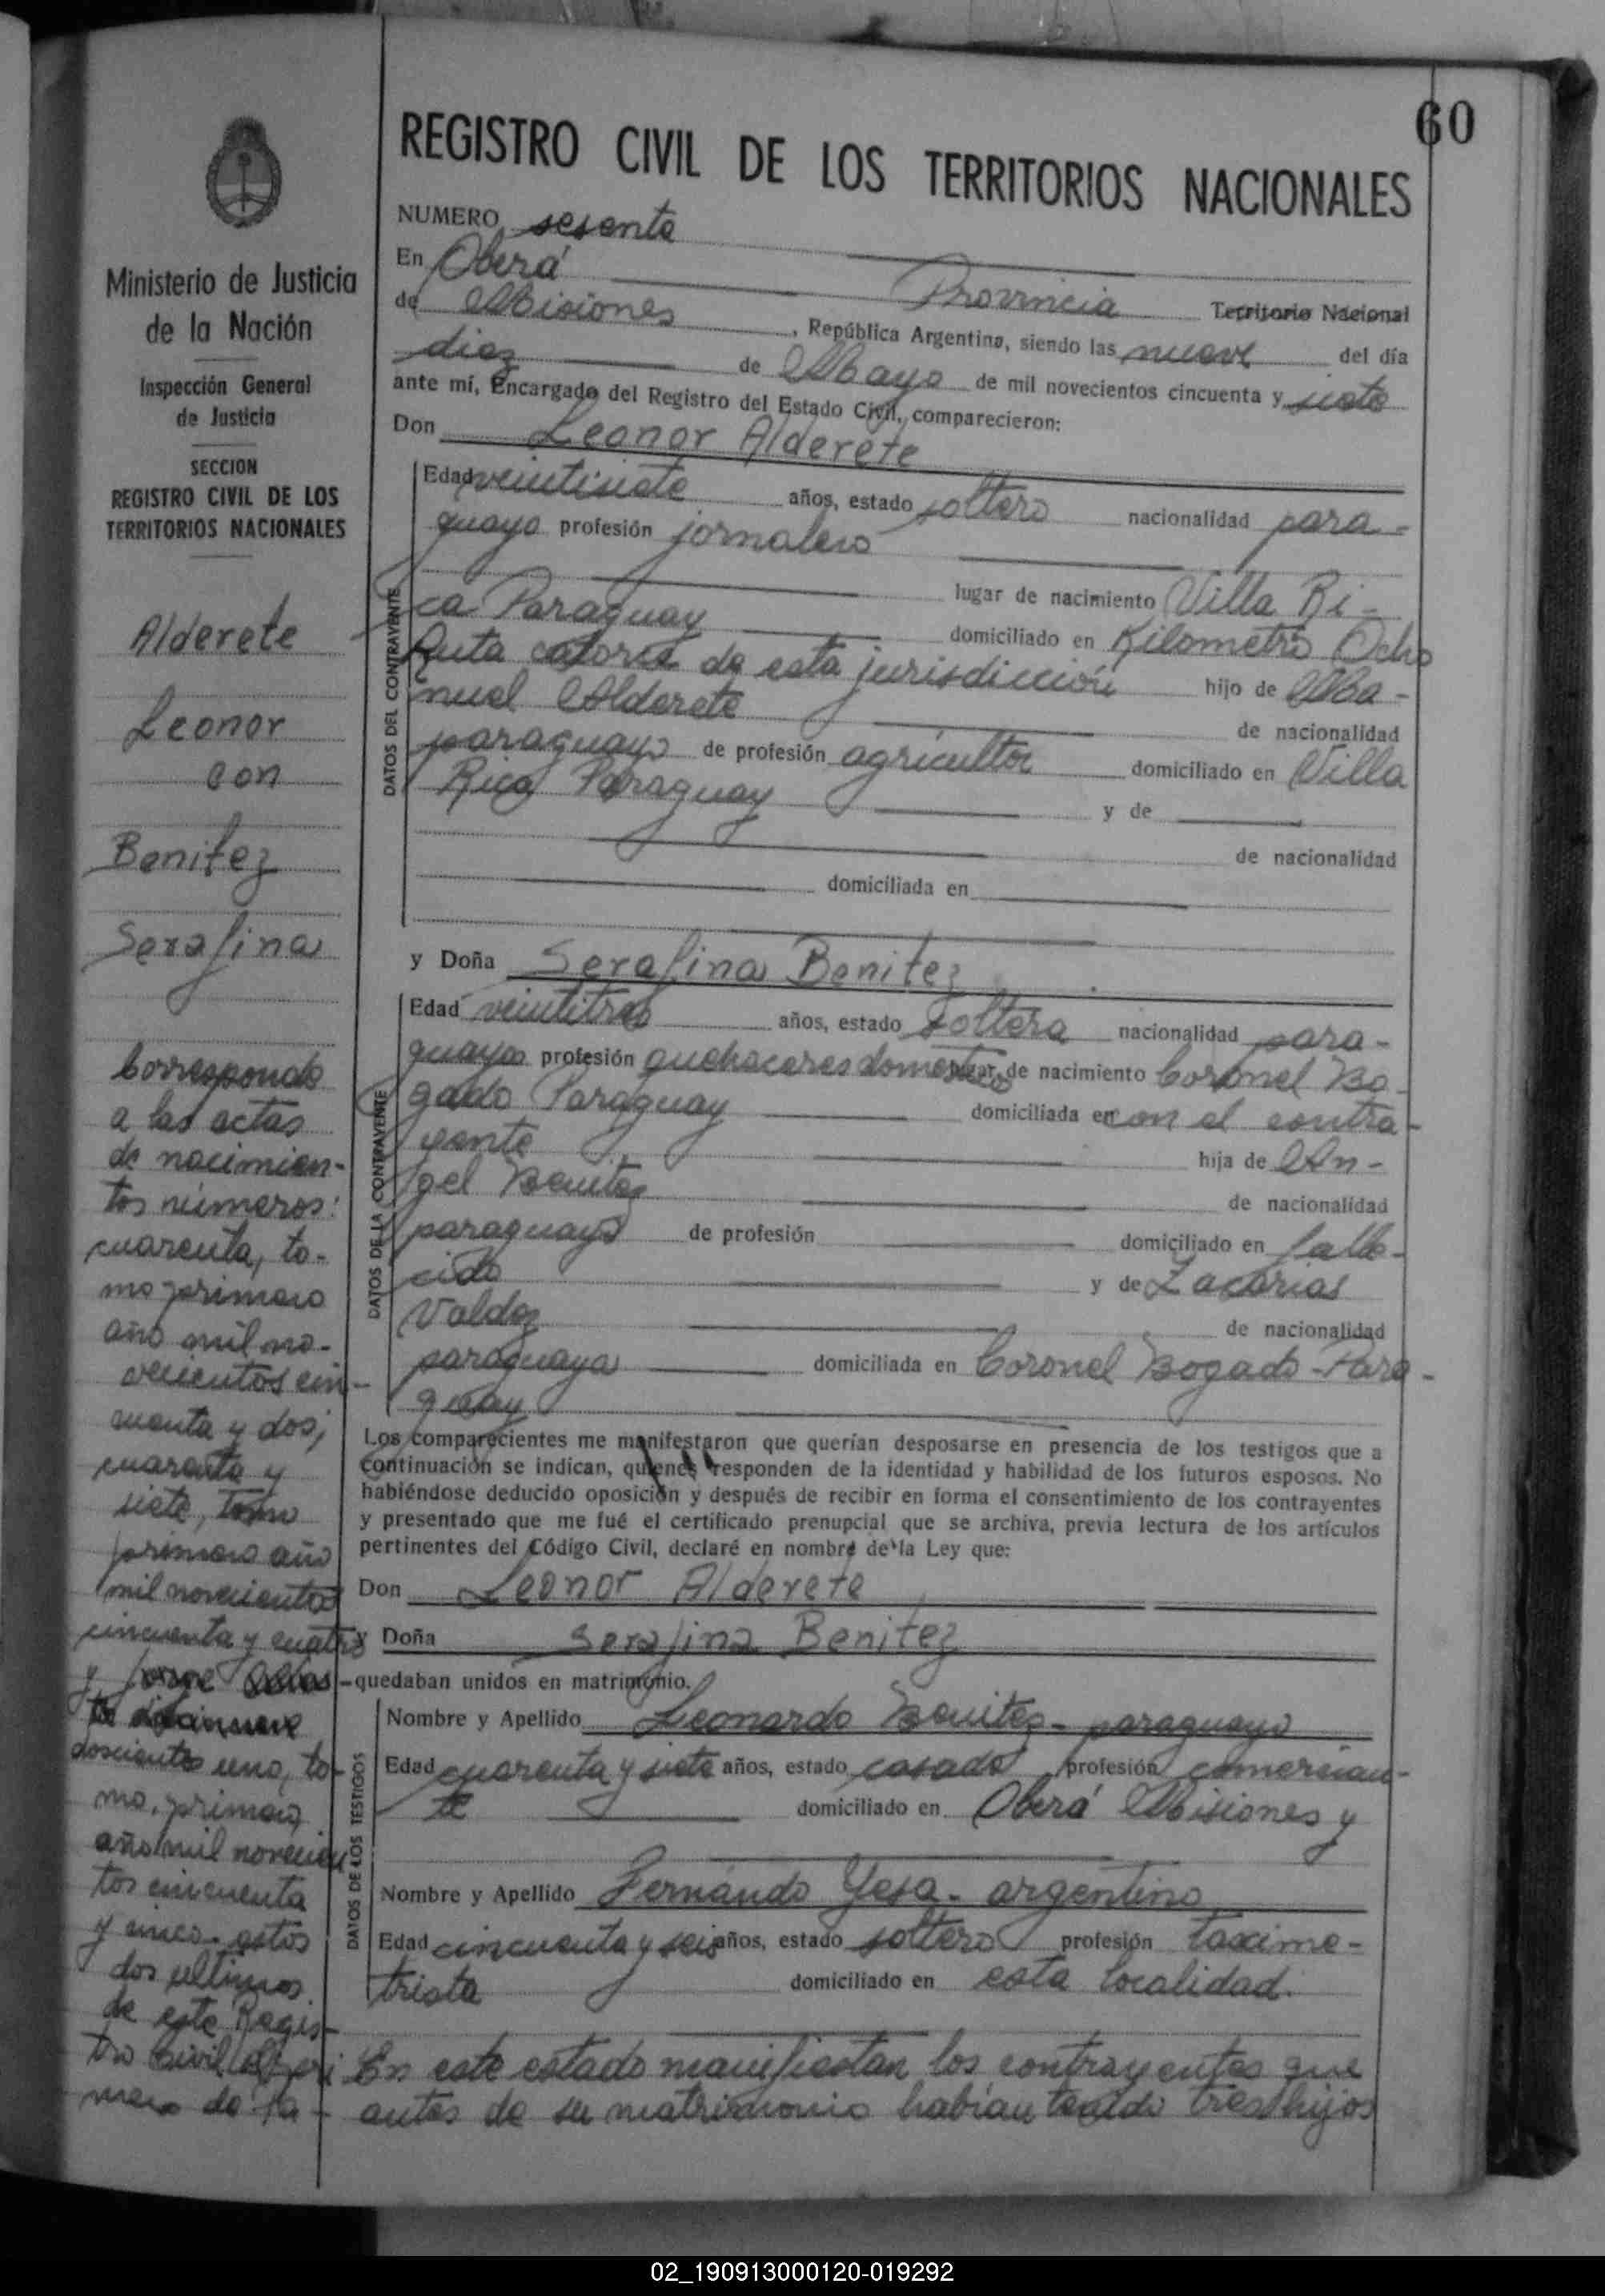 60
REGISTRO CIVIL DE LOS TERRITORIOS NACIONALES
Ministerio de Justicia
de la Nación
Inspección General
de Justicia
SECCION
REGISTRO CIVIL DE LOS
TERRITORIOS NACIONALES
Alderete
Leonor
con
Benitez
Serafina
Corresponde
a las actas
de nacimien-
tos números:
cuarenta, to-
mo primero
año mil no-
vecientos cin-
cuenta y dos,
cuarenta y
siete, tomo
primero año
mil novecientos
cincuenta y cuatro
y
doscientos uno, to-
mo, primero
año mil novecien
tos cincuenta
y cinco. estos
dos ultimos
de este Regis-
tro Civil
mero de la
NUMERO sesenta
En Oberá Provincia Territorio Nacional
de Misiones, República Argentina, siendo las nueve del día
diez de Mayo de mil novecientos cincuenta y siete
ante mí, Encargado del Registro del Estado Civil, comparecieron:
Don Leonor Alderete
DATOS DEL CONTRAYENTE
Edad veintisiete años, estado soltero nacionalidad para-
guayo profesión jornalero
lugar de nacimiento Villa Ri-
ca Paraguay domiciliado en Kilometro Ocho
Ruta catorce de esta jurisdicción hijo de Ma-
nuel Alderete de nacionalidad
paraguayo de profesión agricultor domiciliado en Villa
Rica Paraguay y de
de nacionalidad
domiciliada en
y Doña Serafina Benitez
DATOS DE LA CONTRAYENTE
Edad veintitres años, estado soltera nacionalidad para-
guaya profesión quehaceres domesticos lugar de nacimiento Coronel Bo-
gado Paraguay domiciliada en con el contra-
yente hija de An-
gel Benitez de nacionalidad
paraguayo de profesión domiciliado en falle-
cido y de Zacarias
Valdez de nacionalidad
paraguaya domiciliada en Coronel Bogado-Para-
guay
Los comparecientes me manifestaron que querían desposarse en presencia de los testigos que a
continuación se indican, quienes responden de la identidad y habilidad de los futuros esposos. No
habiéndose deducido oposición y después de recibir en forma el consentimiento de los contrayentes
y presentado que me fué el certificado prenupcial que se archiva, previa lectura de los artículos
pertinentes del Código Civil, declaré en nombre de la Ley que:
Don Leonor Alderete
y Doña Serafina Benitez
-quedaban unidos en matrimonio.
DATOS DE LOS TESTIGOS
Nombre y Apellido Leonardo Benitez- paraguayo
Edad cuarenta y siete años, estado casado profesión comercian-
te domiciliado en Oberá Misiones y
Nombre y Apellido Fernando Yesa- argentino
Edad cincuenta y seis años, estado soltero profesión taxime-
trista domiciliado en esta localidad.
En este estado manifiestan los contrayentes que
antes de su matrimonio habían tenido tres hijos
02_190913000120-019292